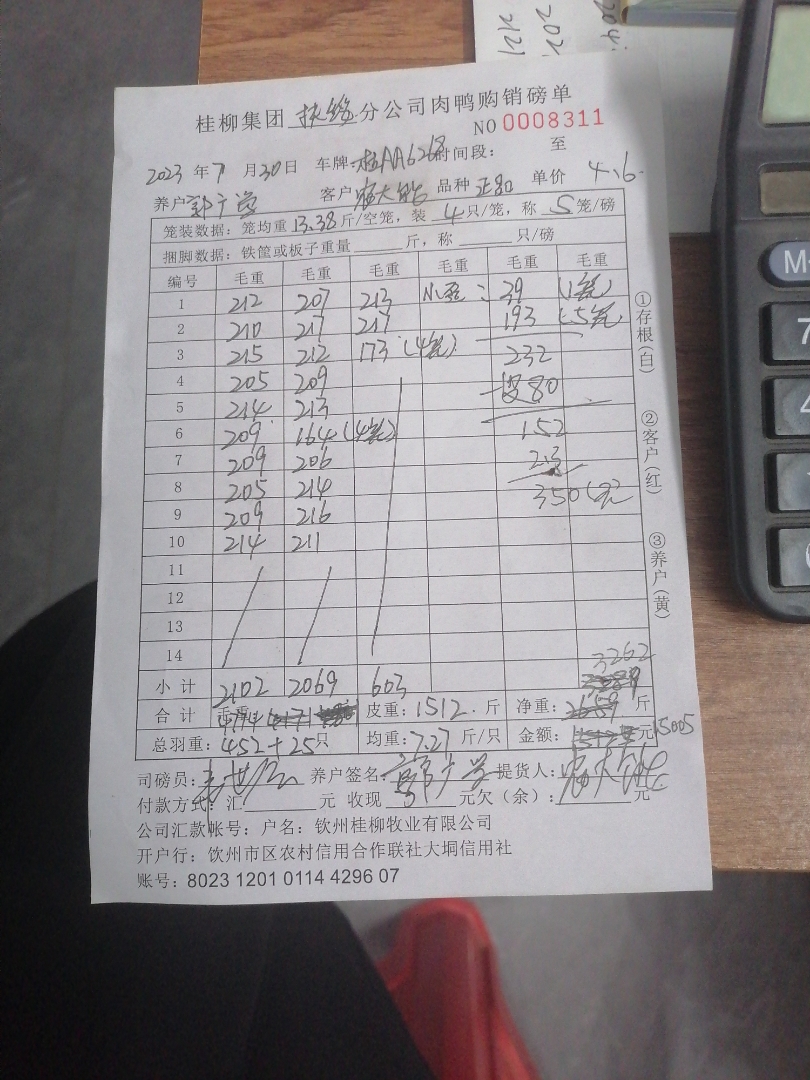 桂柳集团 扶绥 分公司肉鸭购销磅单
NO 0008311
2023 年 7 月 30 日 车牌 桂AA6268 时间段： 至
养户 客户 品种 正品 单价 4.6
笼装数据：笼均重 13.38 斤/空笼，装 4 只/笼，称 5 笼/磅
捆脚数据：铁筐或板子重量 斤，称 只/磅
编号 毛重 毛重 毛重 毛重 毛重 毛重
1 212 207 213 : 39 (1笼)
2 210 217 217 193 (5笼)
3 215 212 173 (4笼) 232
4 205 209 80
5 214 213
6 209 164 (4笼) 152
7 209 206 2.3
8 205 214 350
9 209 216
10 214 211
11
12
13
14
3262
小计 2102 2069 603
合计 毛重: 4774 皮重：1512 斤 净重：斤
总羽重：452+25只 均重：7.27 斤/只 金额：元 15005
司磅员： 养户签名 提货人：
付款方式：汇 元 收现 元欠（余）： 元
公司汇款帐号：户名：钦州桂柳牧业有限公司
开户行：钦州市区农村信用合作联社大垌信用社
账号：8023 1201 0114 4296 07
①存根(白)
②客户(红)
③养户(黄)
M
7